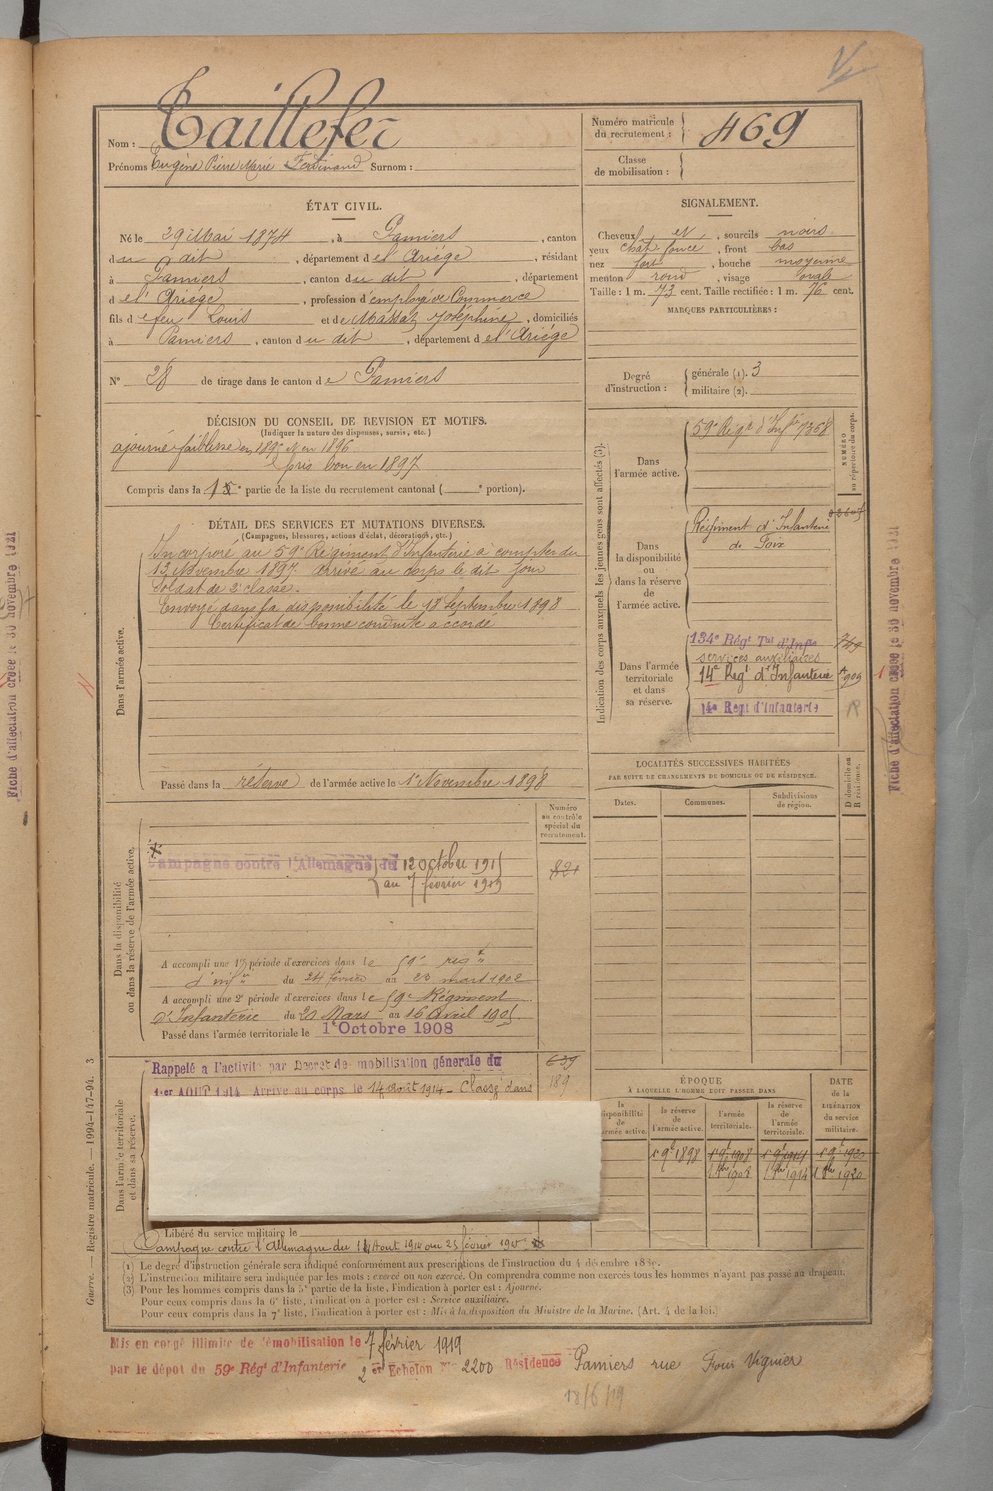 Nom : Taillefer
Prénoms Eugène Pierre Marie Ferdinand Surnom :
Numéro matricule du recrutement : 469
Classe de mobilisation :
ÉTAT CIVIL.
Né le 29 Mai 1874, à Pamiers, canton
du dit, département de l'Ariège, résidant
à Pamiers, canton du dit, département
de l'Ariège, profession d'employé de Commerce
fils de feu Louis et de Massat Joséphine, domiciliés
à Pamiers, canton du dit, département de l'Ariège
N° 28 de tirage dans le canton de Pamiers
SIGNALEMENT.
Cheveux et, sourcils noirs
yeux chât. foncé, front bas
nez fort, bouche moyenne
menton rond, visage ovale
Taille : 1 m. 73 cent. Taille rectifiée : 1 m. 76 cent.
MARQUES PARTICULIÈRES :
Degré d'instruction : générale (1). 3
militaire (2).
DÉCISION DU CONSEIL DE REVISION ET MOTIFS.
(Indiquer la nature des dispenses, sursis, etc.)
ajourné faiblesse en 1895 et en 1896
pris bon en 1897
Compris dans la 1e partie de la liste du recrutement cantonal ( e portion).
DÉTAIL DES SERVICES ET MUTATIONS DIVERSES.
(Campagnes, blessures, actions d'éclat, décorations, etc.)
Dans l'armée active.
Incorporé au 59e Régiment d'Infanterie à compter du
13 Novembre 1897. arrivé au corps le dit jour
soldat de 2e classe.
Envoyé dans la disponibilité le 18 Septembre 1898
Certificat de bonne conduite accordé
Passé dans la réserve de l'armée active le 1er Novembre 1898
Indication des corps auxquels les jeunes gens sont affectés (3).
NUMÉRO au répertoire du corps.
Dans l'armée active.
59e Régt d'Infie 7368
Dans la disponibilité ou dans la réserve de l'armée active.
Régiment d'Infanterie
de Foix
Dans l'armée territoriale et dans sa réserve.
134e Régt Tal d'Infie
services auxiliaires
14e Régt d'Infanterie
14e Régt d'Infanterie
LOCALITÉS SUCCESSIVES HABITÉES
PAR SUITE DE CHANGEMENTS DE DOMICILE OU DE RÉSIDENCE.
Dates. Communes. Subdivisions de région. D domicile ou R résidence.
Dans la disponibilité ou dans la réserve de l'armée active.
Numéro au contrôle spécial du recrutement.
Campagne contre l'Allemagne du 12 octobre 1915
au 7 février 1919
821
A accompli une 1re période d'exercices dans le 59e regt
d'infie du 24 février au 23 mars 1902
A accompli une 2e période d'exercices dans le 59e Régiment
d'Infanterie du 20 Mars au 16 avril 1905
Passé dans l'armée territoriale le 1er Octobre 1908
Dans l'armée territoriale et dans sa réserve.
Rappelé a l'activité par Decret de mobilisation génerale du
1er AOUT 1914 Arrivé au corps le 14 août 1914 - Classé dans
639
189
Libéré du service militaire le
Campagne contre l'Allemagne du 14 Aout 1914 au 25 février 1915
ÉPOQUE
À LAQUELLE L'HOMME DOIT PASSER DANS
la disponibilité de l'armée active. la réserve de l'armée active. l'armée territoriale. la réserve de l'armée territoriale.
DATE de la LIBÉRATION du service militaire.
(1) Le degré d'instruction générale sera indiqué conformément aux prescriptions de l'instruction du 4 décembre 1889.
(2) L'instruction militaire sera indiquée par les mots : exercé ou non exercé. On comprendra comme non exercés tous les hommes n'ayant pas passé au drapeau.
(3) Pour les hommes compris dans la 5e partie de la liste, l'indication à porter est : Ajourné.
Pour ceux compris dans la 6e liste, l'indication à porter est : Service auxiliaire.
Pour ceux compris dans la 7e liste, l'indication à porter est : Mis à la disposition du Ministre de la Marine. (Art. 4 de la loi.)
Mis en congé illimité de démobilisation le 7 février 1919
par le dépôt du 59e Régt d'Infanterie 2e Echelon N° 2200 Résidence Pamiers rue Four Vignier
18/6/19
Guerre. — Registre matricule. — 1994-147-94. 3
Fiche d'affectation créée le 30 novembre 1921
Fiche d'affectation créée le 30 novembre 1921